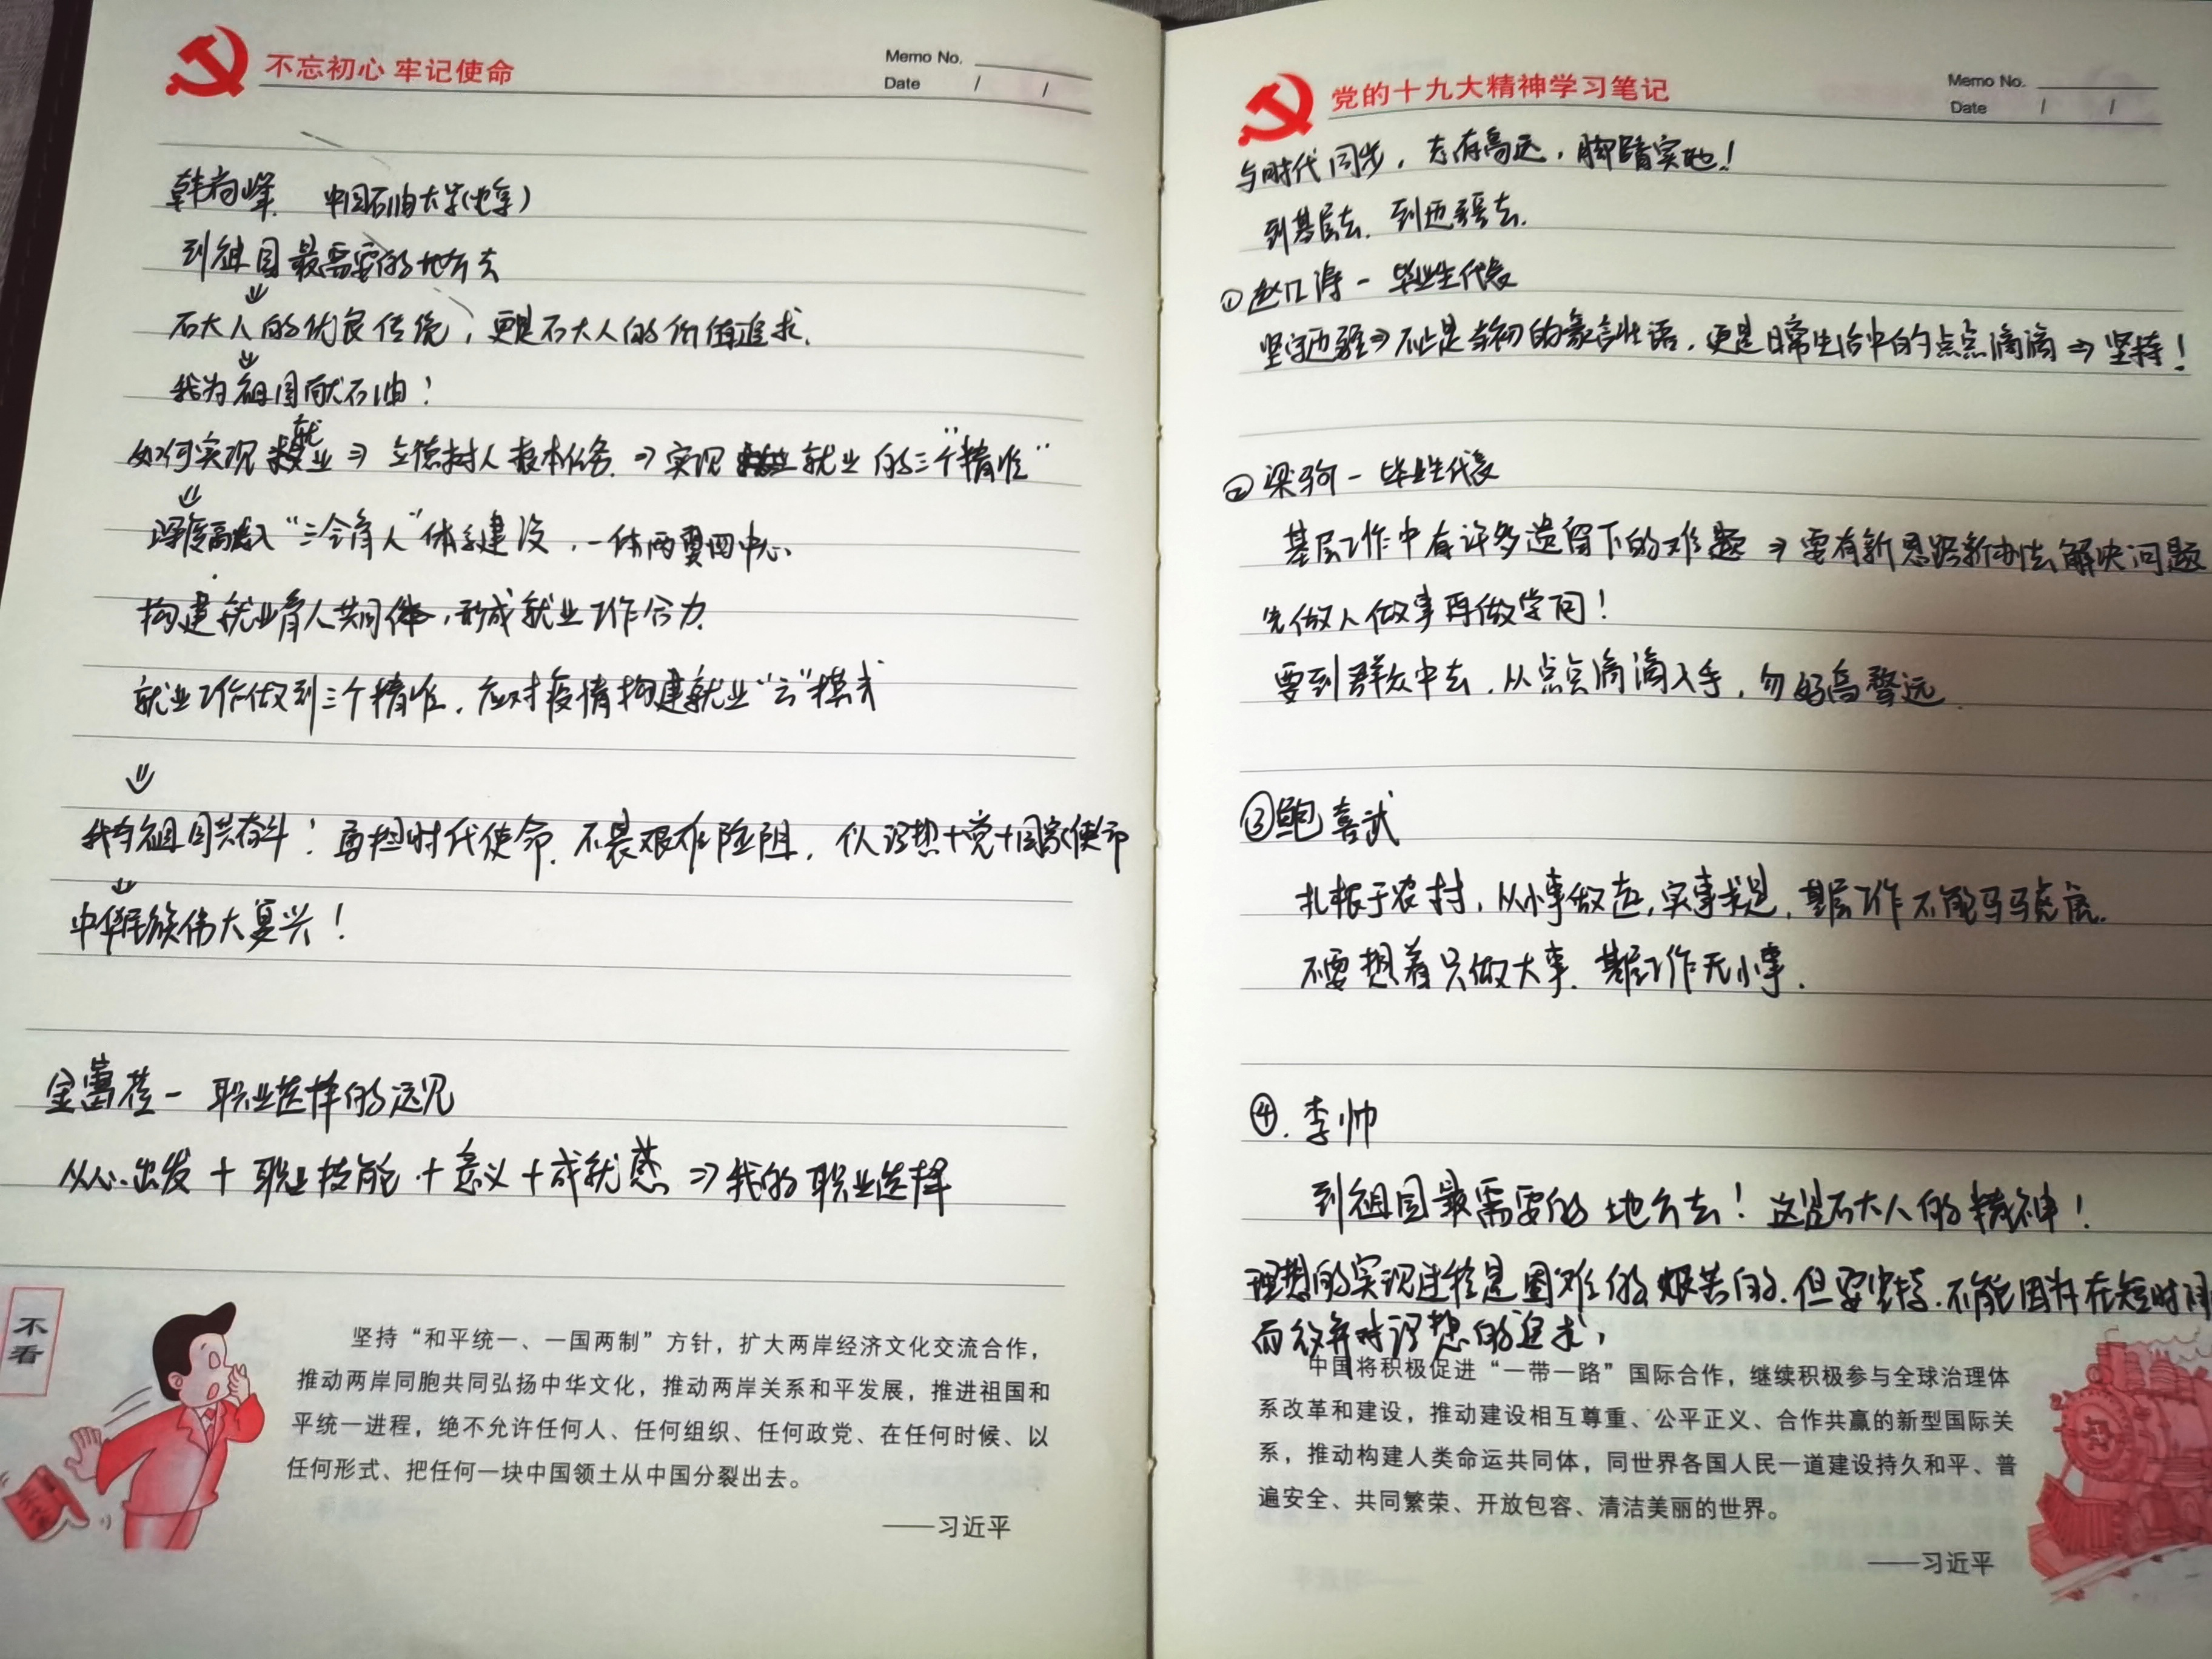 不忘初心 牢记使命
Memo No.
Date / /
韩尚峰 中国石油大学(北京)
到祖国最需要的地方去
⇓
石大人的优良传统，更是石大人的价值追求.
⇓
我为祖国献石油！
如何实现就业⇒立德树人根本任务.⇒实现就业的三个"精准"
⇓
深度融入"三全育人"体系建设，一体两翼四中心、
构建就业育人共同体，形成就业工作合力.
就业工作做到三个精准，应对疫情构建就业"云"模式
⇓
我与祖国共奋斗！勇担时代使命.不畏艰难险阻，个人理想+党+国家使命
⇓
中华民族伟大复兴！
金蕾莅－职业选择的远见
从心出发+职业技能+意义+成就感⇒我的职业选择
不看
坚持“和平统一、一国两制”方针，扩大两岸经济文化交流合作，
推动两岸同胞共同弘扬中华文化，推动两岸关系和平发展，推进祖国和
平统一进程，绝不允许任何人、任何组织、任何政党、在任何时候、以
任何形式、把任何一块中国领土从中国分裂出去。
——习近平
党的十九大精神学习笔记
Memo No.
Date / /
与时代同步，志存高远，脚踏实地！
到基层去.到边疆去.
①赵 涛－毕业生代表
坚守边疆⇒不止是当初的豪言壮语，更是日常生活中的点点滴滴⇒坚持！
②梁珂－毕业生代表
基层工作中有许多遗留下的难题⇒要有新思路新办法解决问题
先做人做事再做学问！
要到群众中去.从点点滴滴入手，勿好高骛远.
③鲍喜武
扎根于农村，从小事做起，实事求是，基层工作不能马马虎虎.
不要想着只做大事.基层工作无小事.
④.李帅
到祖国最需要的地方去！这是石大人的精神！
理想的实现过程是困难的艰苦的.但要坚持.不能因为在短时间
而放弃对理想的追求，
中国将积极促进“一带一路”国际合作，继续积极参与全球治理体
系改革和建设，推动建设相互尊重、公平正义、合作共赢的新型国际关
系，推动构建人类命运共同体，同世界各国人民一道建设持久和平、普
遍安全、共同繁荣、开放包容、清洁美丽的世界。
——习近平